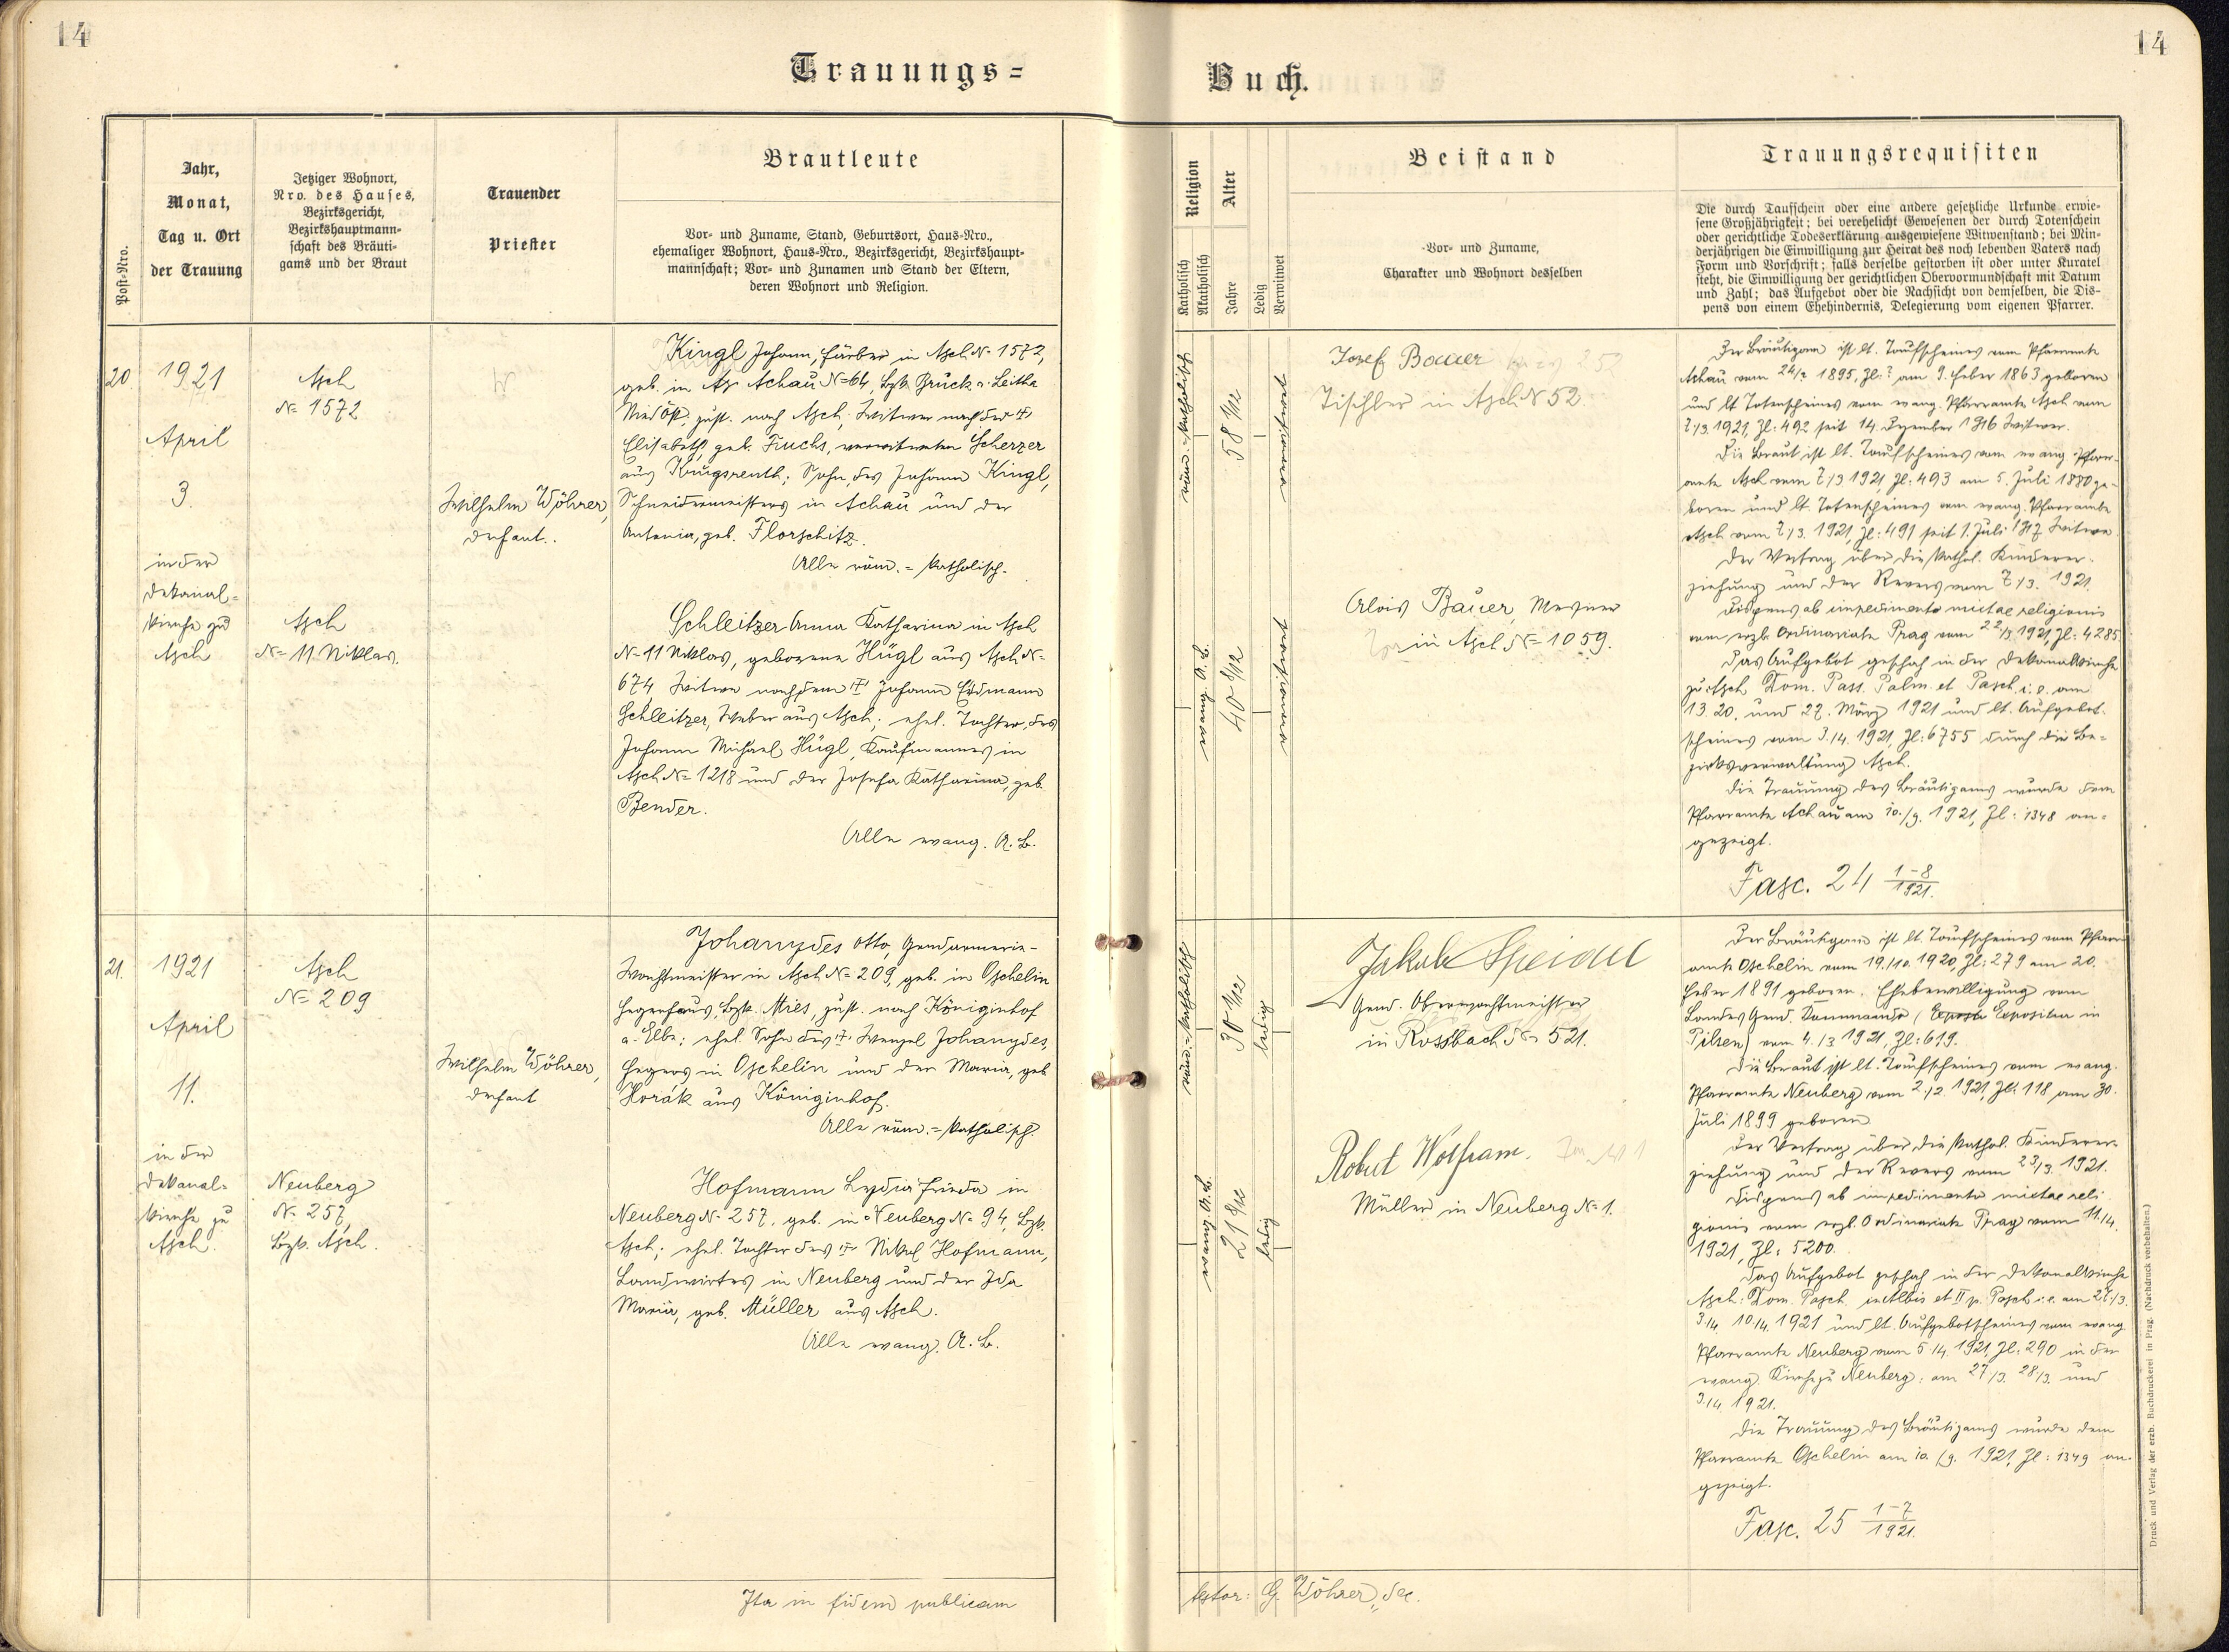 14
14
Trauungs=
Buch.
Post-Nro.
Jahr,
Monat,
Tag u. Ort
der Trauung
Jetziger Wohnort,
Nro. des Hauses,
Bezirksgericht,
Bezirkshauptmann-
schaft des Bräuti-
gams und der Braut
Trauender
Priester
Brautleute
Vor- und Zuname, Stand, Geburtsort, Haus-Nro.,
ehemaliger Wohnort, Haus-Nro., Bezirksgericht, Bezirkshaupt-
mannschaft; Vor- und Zunamen und Stand der Eltern,
deren Wohnort und Religion.
Religion
Katholisch
Akatholisch
Alter
Jahre
Ledig
Verwitwet
Beistand
Vor- und Zuname,
Charakter und Wohnort desselben
Trauungsrequisiten
Die durch Taufschein oder eine andere gesetzliche Urkunde erwie-
sene Großjährigkeit; bei verehelicht Gewesenen der durch Totenschein
oder gerichtliche Todeserklärung ausgewiesene Witwenstand; bei Min-
derjährigen die Einwilligung zur Heirat des noch lebenden Vaters nach
Form und Vorschrift; falls derselbe gestorben ist oder unter Kuratel
steht, die Einwilligung der gerichtlichen Obervormundschaft mit Datum
und Zahl; das Aufgebot oder die Nachsicht von demselben, die Dis-
pens von einem Ehehindernis, Delegierung vom eigenen Pfarrer.
20.
1921
April
3.
in der
Dekanal-
kirche zu
Asch
Asch
N= 1572
Asch
N= 11 Niklas.
Wilhelm Wöhrer,
Dechant.
Kingl Johann, Färber in Asch N= 1572,
geb. in Achau N=64, Bzk. Bruck a. Leitha
Nied Öst., zust. nach Asch; Witwer nach der †
Elisabeth geb. Fuchs, verwitweten Scherzer
aus Krugsreuth; Sohn des Johann Kingl,
Schneidermeisters in Achau und der
Antonia, geb. Florschitz.
Alle röm.=katholisch.
Schleitzer Anna Katharina in Asch
N= 11 Niklas, geborene Hügl aus Asch N=
674 Witwe nach dem † Johann Erdmann
Schleitzer, Weber aus Asch; ehel. Tochter des
Johann Michael Hügl, Kaufmannes in
Asch N= 1218 und der Josefa Katharina, geb.
Bender.
Alle evang. A. B.
röm.=katholisch
58 1/12
verwitwet
evang. A. B.
40 8/12
verwitwet
Josef Bauer
Tischler in Asch N 52.
Alois Bauer, Mesner
in Asch N= 1059.
Der Bräutigam ist lt. Taufscheines vom Pfarramte
Achau vom 24/2 1895, Zl: ? am 9. Feber 1863 geboren
und lt. Totenscheines vom evang. Pfarramte Asch vom
7./3. 1921, Zl: 492 seit 14. Dezember 1916 Witwer.
Die Braut ist lt. Taufscheines vom evang. Pfarr-
amte Asch vom 7./3 1921, Zl: 493 am 5. Juli 1880 ge-
boren und lt. Totenscheines vom evang. Pfarramte
Asch vom 7./3. 1921, Zl: 491 seit 1. Juli 1917 Witwe.
Der Vertrag über die kathol. Kinderer-
ziehung und der Revers vom 7./3. 1921.
Dispens ab impedimento mixtae religionis
vom erzb. Ordinariate Prag vom 22/3. 1921, Zl: 4285.
Das Aufgebot geschah in der Dekanalkirche
zu Asch Dom. Pass. Palm. et Pasch. i. e. am
13. 20. und 27. März 1921 und lt. Aufgebot-
scheines vom 3./4. 1921, Zl: 6755 durch die Be-
zirksverwaltung Asch.
Die Trauung des Bräutigams wurde dem
Pfarramte Achau am 10./9. 1921, Zl: 1348 an-
gezeigt.
Fasc. 24 1-8/1921.
21.
1921
April
11.
in der
Dekanal-
kirche zu
Asch.
Asch
N= 209
Neuberg
N= 257,
Bzk. Asch.
Wilhelm Wöhrer,
Dechant
Johanydes Otto, Gendarmerie-
Wachtmeister in Asch N= 209, geb. in Oschelin
Hegerhaus, Bzk. Mies, zust. nach Königinhof
a. Elbe; ehel. Sohn des † Wenzel Johanydes,
Hegers in Oschelin und der Maria, geb
Horák aus Königinhof.
Alle röm.=katholisch.
Hofmann Lydia Frieda in
Neuberg N= 257, geb. in Neuberg N= 94, Bzk.
Asch; ehel. Tochter des † Nikol Hofmann,
Landwirtes in Neuberg und der Ida
Maria, geb. Müller aus Asch.
Alle evang. A. B.
röm.=katholisch
30 1/12
ledig
evang. A. B.
21 8/12
ledig
Jakob Speidel
Gend. Oberwachtmeister
in Rossbach N= 521.
Robert Wolfram.
Müller in Neuberg N= 1.
Der Bräutigam ist lt. Taufscheines vom Pfarr-
amte Oschelin vom 19./10. 1920, Zl: 279 am 20.
Feber 1891 geboren. Ehebewilligung vom
Landes Gend. Kommando (Expositur in
Pilsen) vom 4./3 1921, Zl: 619.
Die Braut ist lt. Taufscheines vom evang.
Pfarramte Neuberg vom 2./2. 1921, Zl: 118 am 30.
Juli 1899 geboren.
Der Vertrag über die kathol. Kinderer-
ziehung und der Revers vom 23/3. 1921.
Dispens ab impedimento mixtae reli
gionis vom erzb. Ordinariate Prag vom 11./4.
1921, Zl: 5200.
Das Aufgebot geschah in der Dekanalkirche
Asch: Dom. Pasch. in Albis et II p. Pasch i. e. am 27./3.
3./4. 10./4. 1921 und lt. Aufgebotscheines vom evang.
Pfarramte Neuberg vom 5./4. 1921, Zl: 290 in der
evang. Kirche zu Neuberg: am 27./3. 28./3. und
3./4. 1921.
Die Trauung des Bräutigams wurde dem
Pfarramte Oschelin am 10./9. 1921, Zl: 1349 an-
gezeigt.
Fasc. 25 1-7/1921.
Ita in fidem publicam
testor: G. Wöhrer, Dec.
Druck und Verlag der erzb. Buchdruckerei in Prag. (Nachdruck vorbehalten.)